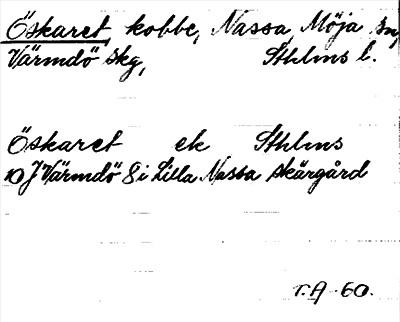 Öskaret, kobbe, Nassa, Möja sn,
Värmdö skg, Sthlms l.
Öskaret ek Sthlms
10 J Värmdö 8 i Lilla Nassa skärgård
r.A. 60.